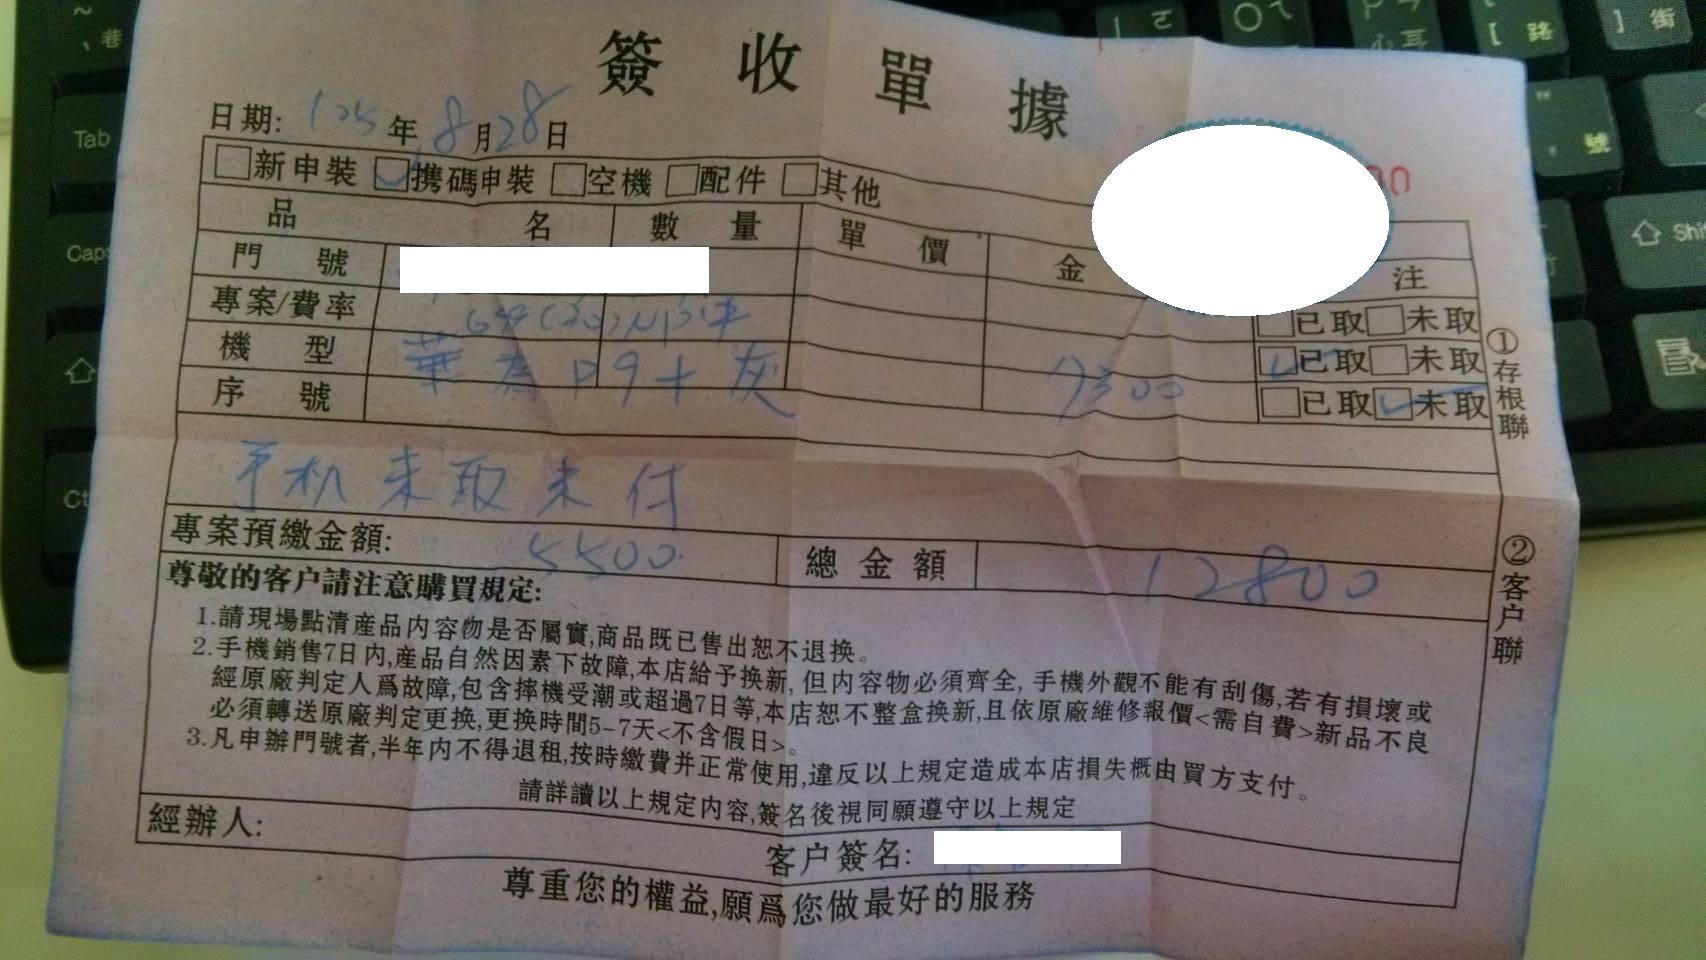 簽收單據
日期: 105年8月28日
新申裝 携碼申裝 空機 配件 其他
品名 數量 單價 金 注
門號
專案/費率 已取 未取
機型 華為 P9+ 灰 7300 已取 未取
序號 已取 未取
手机未取未付
專案預繳金額: 5500 總金額 12800
尊敬的客户請注意購買規定:
1.請現場點清産品内容物是否屬實,商品既已售出恕不退换。
2.手機銷售7日内,産品自然因素下故障,本店給予换新,但内容物必須齊全,手機外觀不能有刮傷,若有損壞或
經原廠判定人爲故障,包含摔機受潮或超過7日等,本店恕不整盒换新,且依原廠維修報價<需自費>新品不良
必須轉送原廠判定更换,更换時間5-7天<不含假日>。
3.凡申辦門號者,半年内不得退租,按時繳費并正常使用,違反以上規定造成本店損失概由買方支付。
請詳讀以上規定内容,簽名後視同願遵守以上規定
經辦人:
客户簽名:
尊重您的權益,願爲您做最好的服務
①存根聯
②客户聯
Tab
Caps
Ctr
巷
路
街
號
Shift